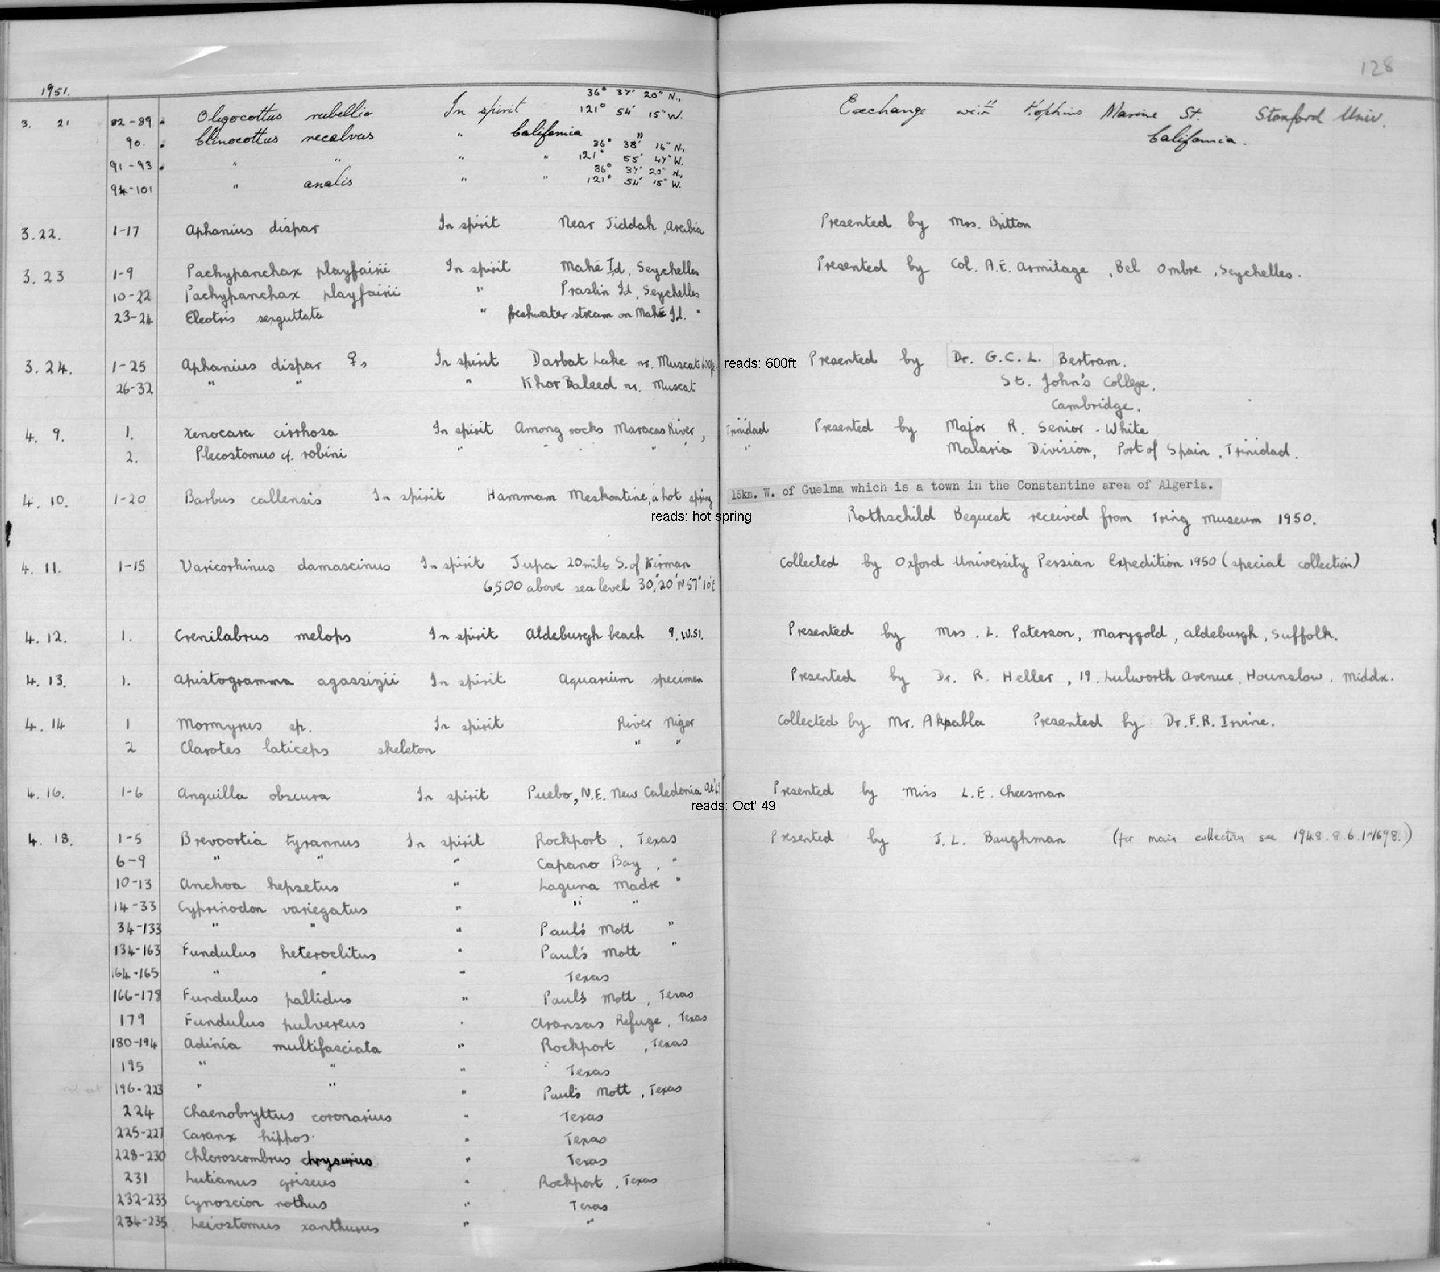 128
1951.
3. 21 82-89 Oligocottus rubellio In spirit 36° 37' 20" N., 121° 54' 15" W. Exchange with Hopkins Marine St. Stanford Univ.
90. Clinocottus recalvus " California " California.
91-93 " " " " 36° 38' 16" N., 121° 55' 47" W.
94-101 " analis " " 36° 37' 20" N., 121° 54' 15" W.
3.22. 1-17 Aphanius dispar In spirit Near Jiddah, Arabia Presented by Mrs. Britton
3.23 1-9 Pachypanchax playfairii In spirit Mahé Id, Seychelles Presented by Col. A.E. Armitage, Bel Ombre, Seychelles.
10-22 Pachypanchax playfairii " Praslin Id, Seychelles
23-24 Eleotris sexguttata " freshwater stream on Mahé Id. "
3.24. 1-25 Aphanius dispar ♀s In spirit Darbat Lake nr. Muscat 600ft reads: 600ft Presented by Dr. G.C.L. Bertram.
26-32 " " " Khor Baleed nr. Muscat St. John's College,
Cambridge.
4. 9. 1. Xenocara cirrhosa In spirit Among rocks Maracas River, Trinidad Presented by Major R. Senior-White
2. Plecostomus cf. robini " " " " Malaria Division, Port of Spain, Trinidad.
4. 10. 1-20 Barbus callensis In spirit Hammam Meskontine, a hot spring 15km. W. of Guelma which is a town in the Constantine area of Algeria.
reads: hot spring Rothschild Bequest received from Tring Museum 1950.
4. 11. 1-15 Varicorhinus damascinus In spirit Jupa 20 mils S. of Kirman Collected by Oxford University Persian Expedition 1950 (special collection)
6,500 above sea level 30°,20' N 57° 10' E
4. 12. 1. Crenilabrus melops In spirit Aldeburgh beach 9.iv.51. Presented by Mrs. L. Paterson, Marygold, Aldeburgh, Suffolk.
4. 13. 1. Apistogramma agassizii In spirit Aquarium specimen Presented by Dr. R. Heller, 19. Lulworth Avenue, Hounslow. Middx.
4. 14 1 Mormyrus sp. In spirit River Niger Collected by Mr. Akpabla Presented by Dr. F.R. Irvine.
2 Clarotes laticeps skeleton " "
4. 16. 1-6 Anguilla obscura In spirit Puebo, N.E. New Caledonia Oct' 49 Presented by Miss L.E. Cheesman
reads: Oct' 49
4. 18. 1-5 Brevoortia tyrannus In spirit Rockport, Texas Presented by J.L. Baughman (for main collection see 1948.8.6.1-1698.)
6-9 " " " Capano Bay, "
10-13 Anchoa hepsetus " Laguna Madre "
14-33 Cyprinodon variegatus " " "
34-133 " " " Paul's Mott "
134-163 Fundulus heteroclitus " Paul's Mott "
164-165 " " " Texas
166-178 Fundulus pallidus " Paul's Mott, Texas
179 Fundulus pulvereus " Aransas Refuge, Texas
180-194 Adinia multifasciata " Rockport, Texas
195 " " " Texas
196-223 " " " Paul's Mott, Texas
224 Chaenobryttus coronarius " Texas
225-227 Caranx hippos. " Texas
228-230 Chloroscombrus chrysurus " Texas
231 Lutianus griseus " Rockport, Texas
232-233 Cynoscion nothus " Texas
234-235 Leiostomus xanthurus " "